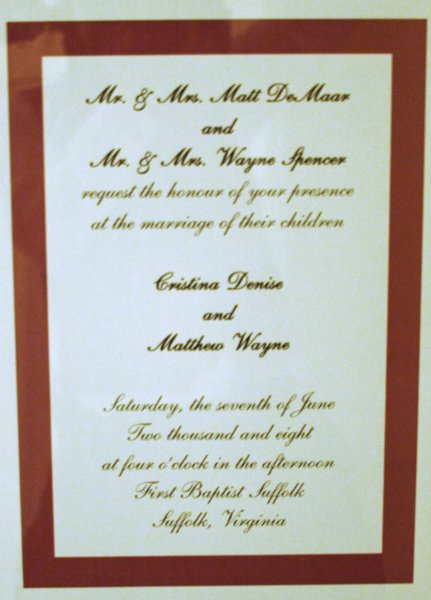 Mr. & Mrs. Matt DeMaar
and
Mr. & Mrs. Wayne Spencer
request the honour of your presence
at the marriage of their children
Cristina Denise
and
Matthew Wayne
Saturday, the seventh of June
Two thousand and eight
at four o'clock in the afternoon
First Baptist Suffolk
Suffolk, Virginia